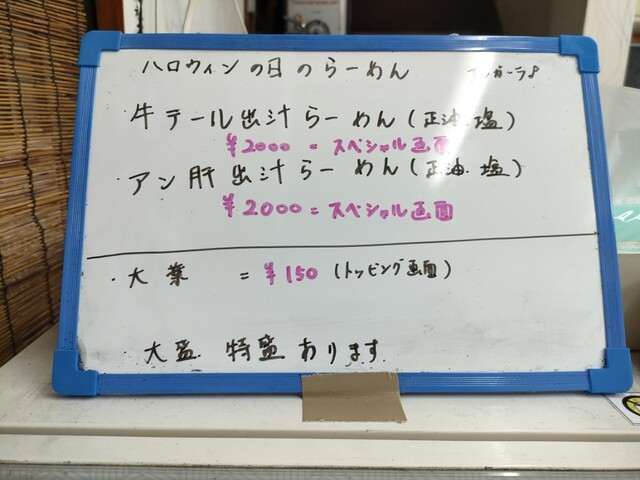 ハロウィンの日のらーめん
・牛テール出汁らーめん(正油・塩)
¥2000=スペシャル画面
・アン肝出汁らーめん(正油・塩)
¥2000=スペシャル画面
・大葉 =¥150(トッピング画面)
大盛.特盛あります